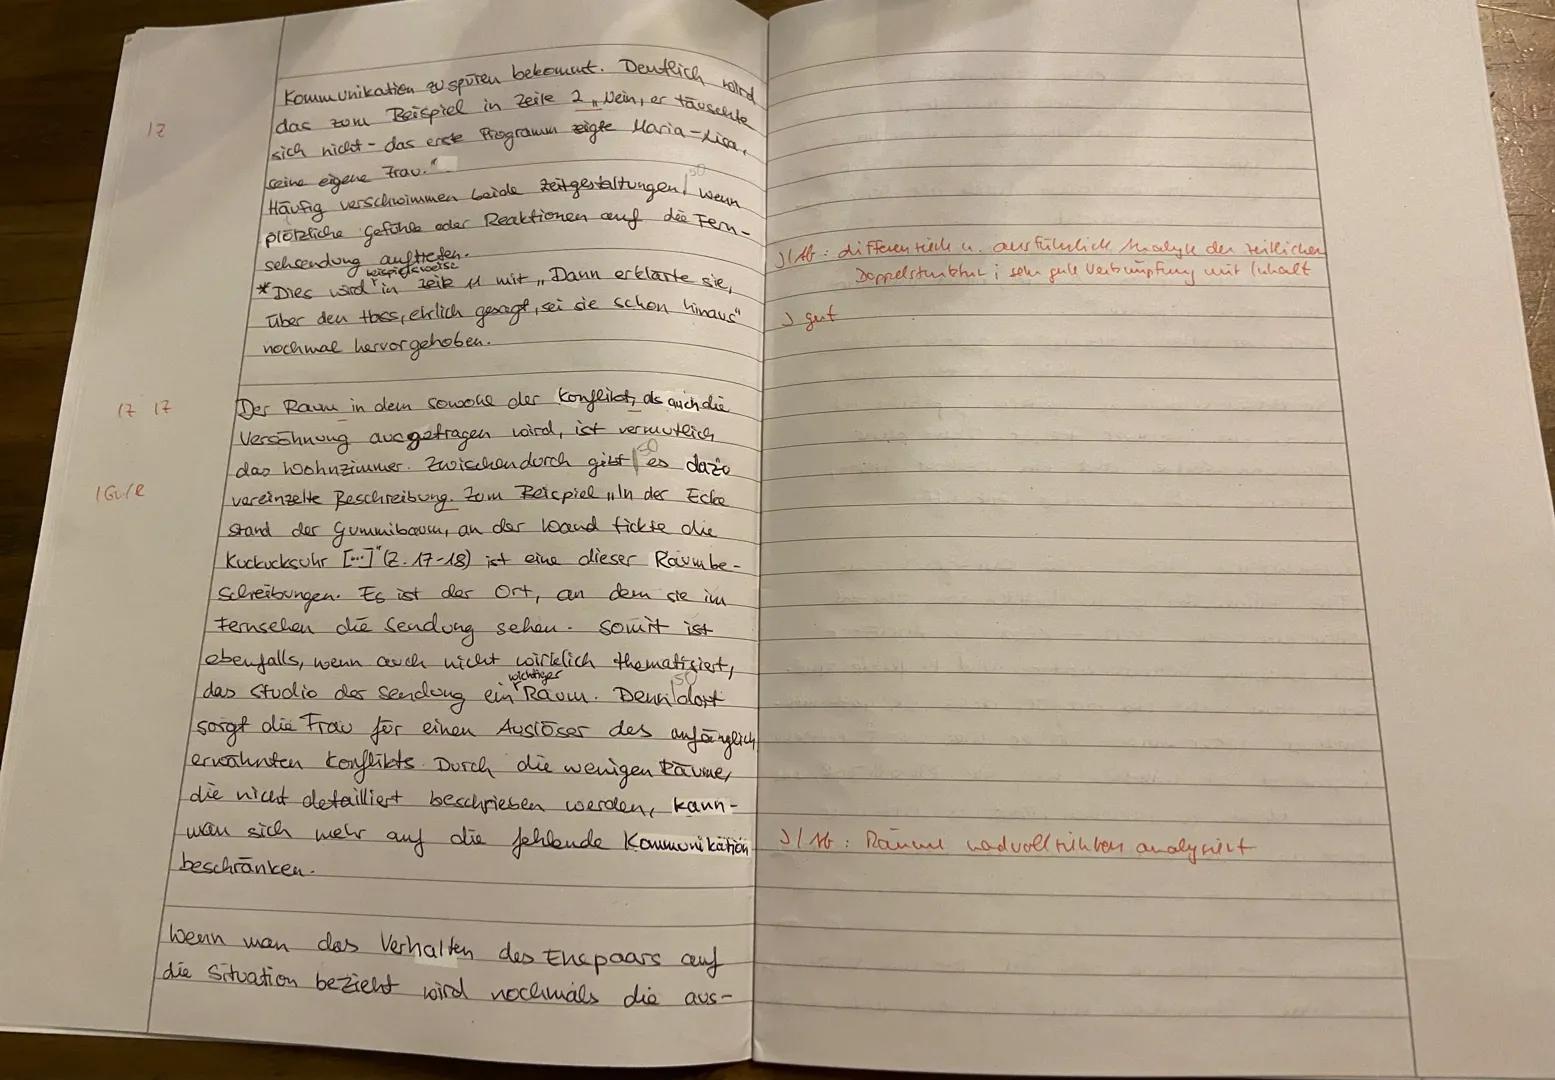 Kommunikation zu spüren bekommt. Deutlich wird
das zum Beispiel in Zeile 2 „Nein, er täuschte
1Z
sich nicht - das erste Programm zeigte Maria-Lisa,
seine eigene Frau."
Häufig verschwimmen beide Zeitgestaltungen, wenn
plötzliche Gefühle oder Reaktionen auf die Fern-
sehsendung auftreten.
*Dies wird beispielsweise in Zeile 11 mit „Dann erklärte sie,
über den Hass, ehrlich gesagt, sei sie schon hinaus"
nochmal hervorgehoben.
J/Ab: differenzierte u. ausführliche Analyse der zeitlichen
Doppelstruktur; sehr gute Verknüpfung mit Inhalt
J gut
1Z 1Z
Der Raum in dem sowohl der Konflikt, als auch die
Versöhnung ausgetragen wird, ist vermutlich
das Wohnzimmer. Zwischendurch gibt es dazu
vereinzelte Beschreibung. Zum Beispiel „In der Ecke
stand der Gummibaum, an der Wand tickte die
Kuckucksuhr [...]" (Z. 17-18) ist eine dieser Raumbe-
schreibungen. Es ist der Ort, an dem sie im
Fernsehen die Sendung sehen. Somit ist
ebenfalls, wenn auch nicht wirklich thematisiert,
das Studio der Sendung ein wichtiger Raum. Denn dort
sorgt die Frau für einen Auslöser des anfänglich
erwähnten Konflikts. Durch die wenigen Räume,
die nicht detailliert beschrieben werden, kann
man sich mehr auf die fehlende Kommunikation
beschränken.
J/Ab: Räume nachvollziehbar analysiert
Wenn man das Verhalten des Ehepaars auf
die Situation bezieht wird nochmals die aus-